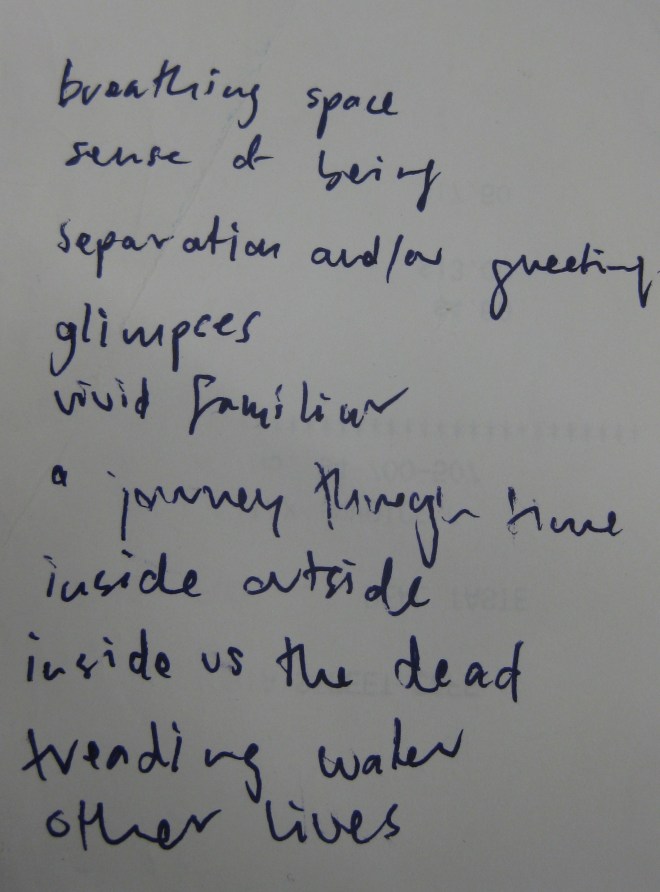 breathing space
sense of being
separation and/or greeting
glimpses
vivid familiar
a journey through time
inside outside
inside us the dead
treading water
other lives